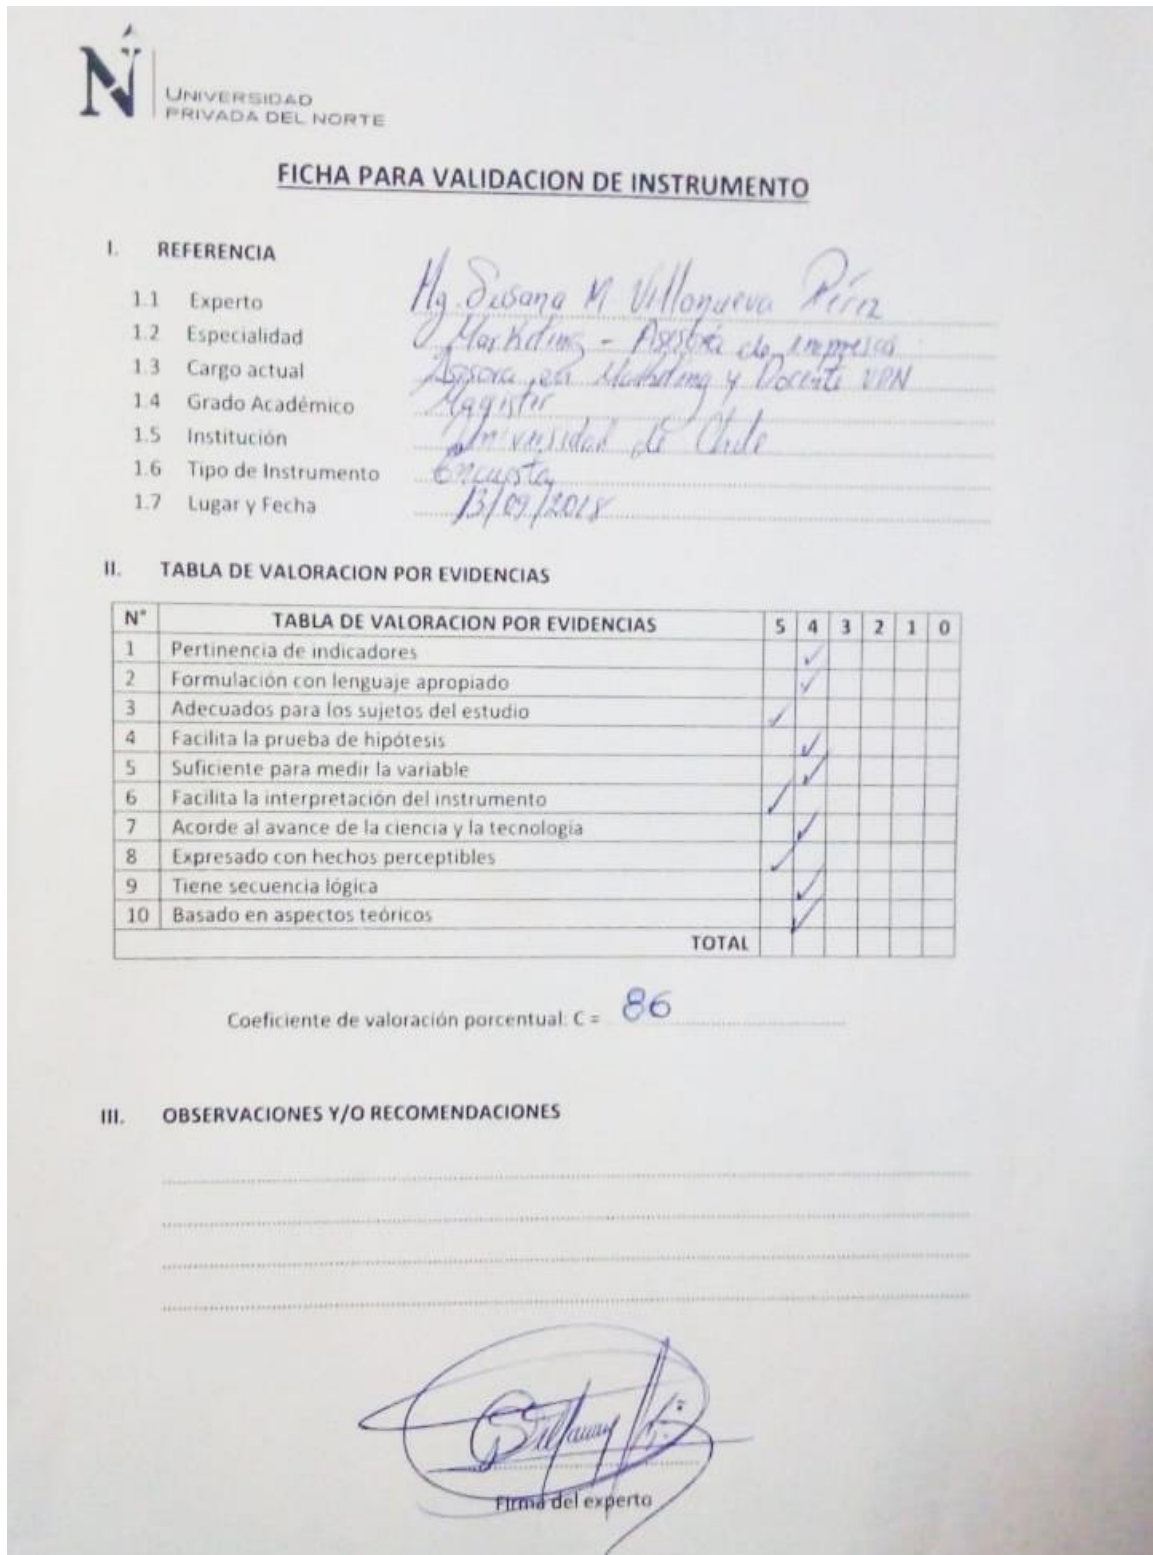 Ń UNIVERSIDAD
PRIVADA DEL NORTE
FICHA PARA VALIDACION DE INSTRUMENTO
I. REFERENCIA
1.1 Experto Mg. Susana M Villanueva Pérez
1.2 Especialidad Marketing - Asesoría de empresas
1.3 Cargo actual Asesora en Marketing y Docente UPN
1.4 Grado Académico Magister
1.5 Institución Universidad de Chile
1.6 Tipo de Instrumento Encuesta
1.7 Lugar y Fecha 13/09/2018
II. TABLA DE VALORACION POR EVIDENCIAS
N° TABLA DE VALORACION POR EVIDENCIAS 5 4 3 2 1 0
1 Pertinencia de indicadores ✓
2 Formulación con lenguaje apropiado ✓
3 Adecuados para los sujetos del estudio ✓
4 Facilita la prueba de hipótesis ✓
5 Suficiente para medir la variable ✓
6 Facilita la interpretación del instrumento ✓
7 Acorde al avance de la ciencia y la tecnología ✓
8 Expresado con hechos perceptibles ✓
9 Tiene secuencia lógica ✓
10 Basado en aspectos teóricos ✓
TOTAL
Coeficiente de valoración porcentual: C = 86
III. OBSERVACIONES Y/O RECOMENDACIONES
Firma del experto